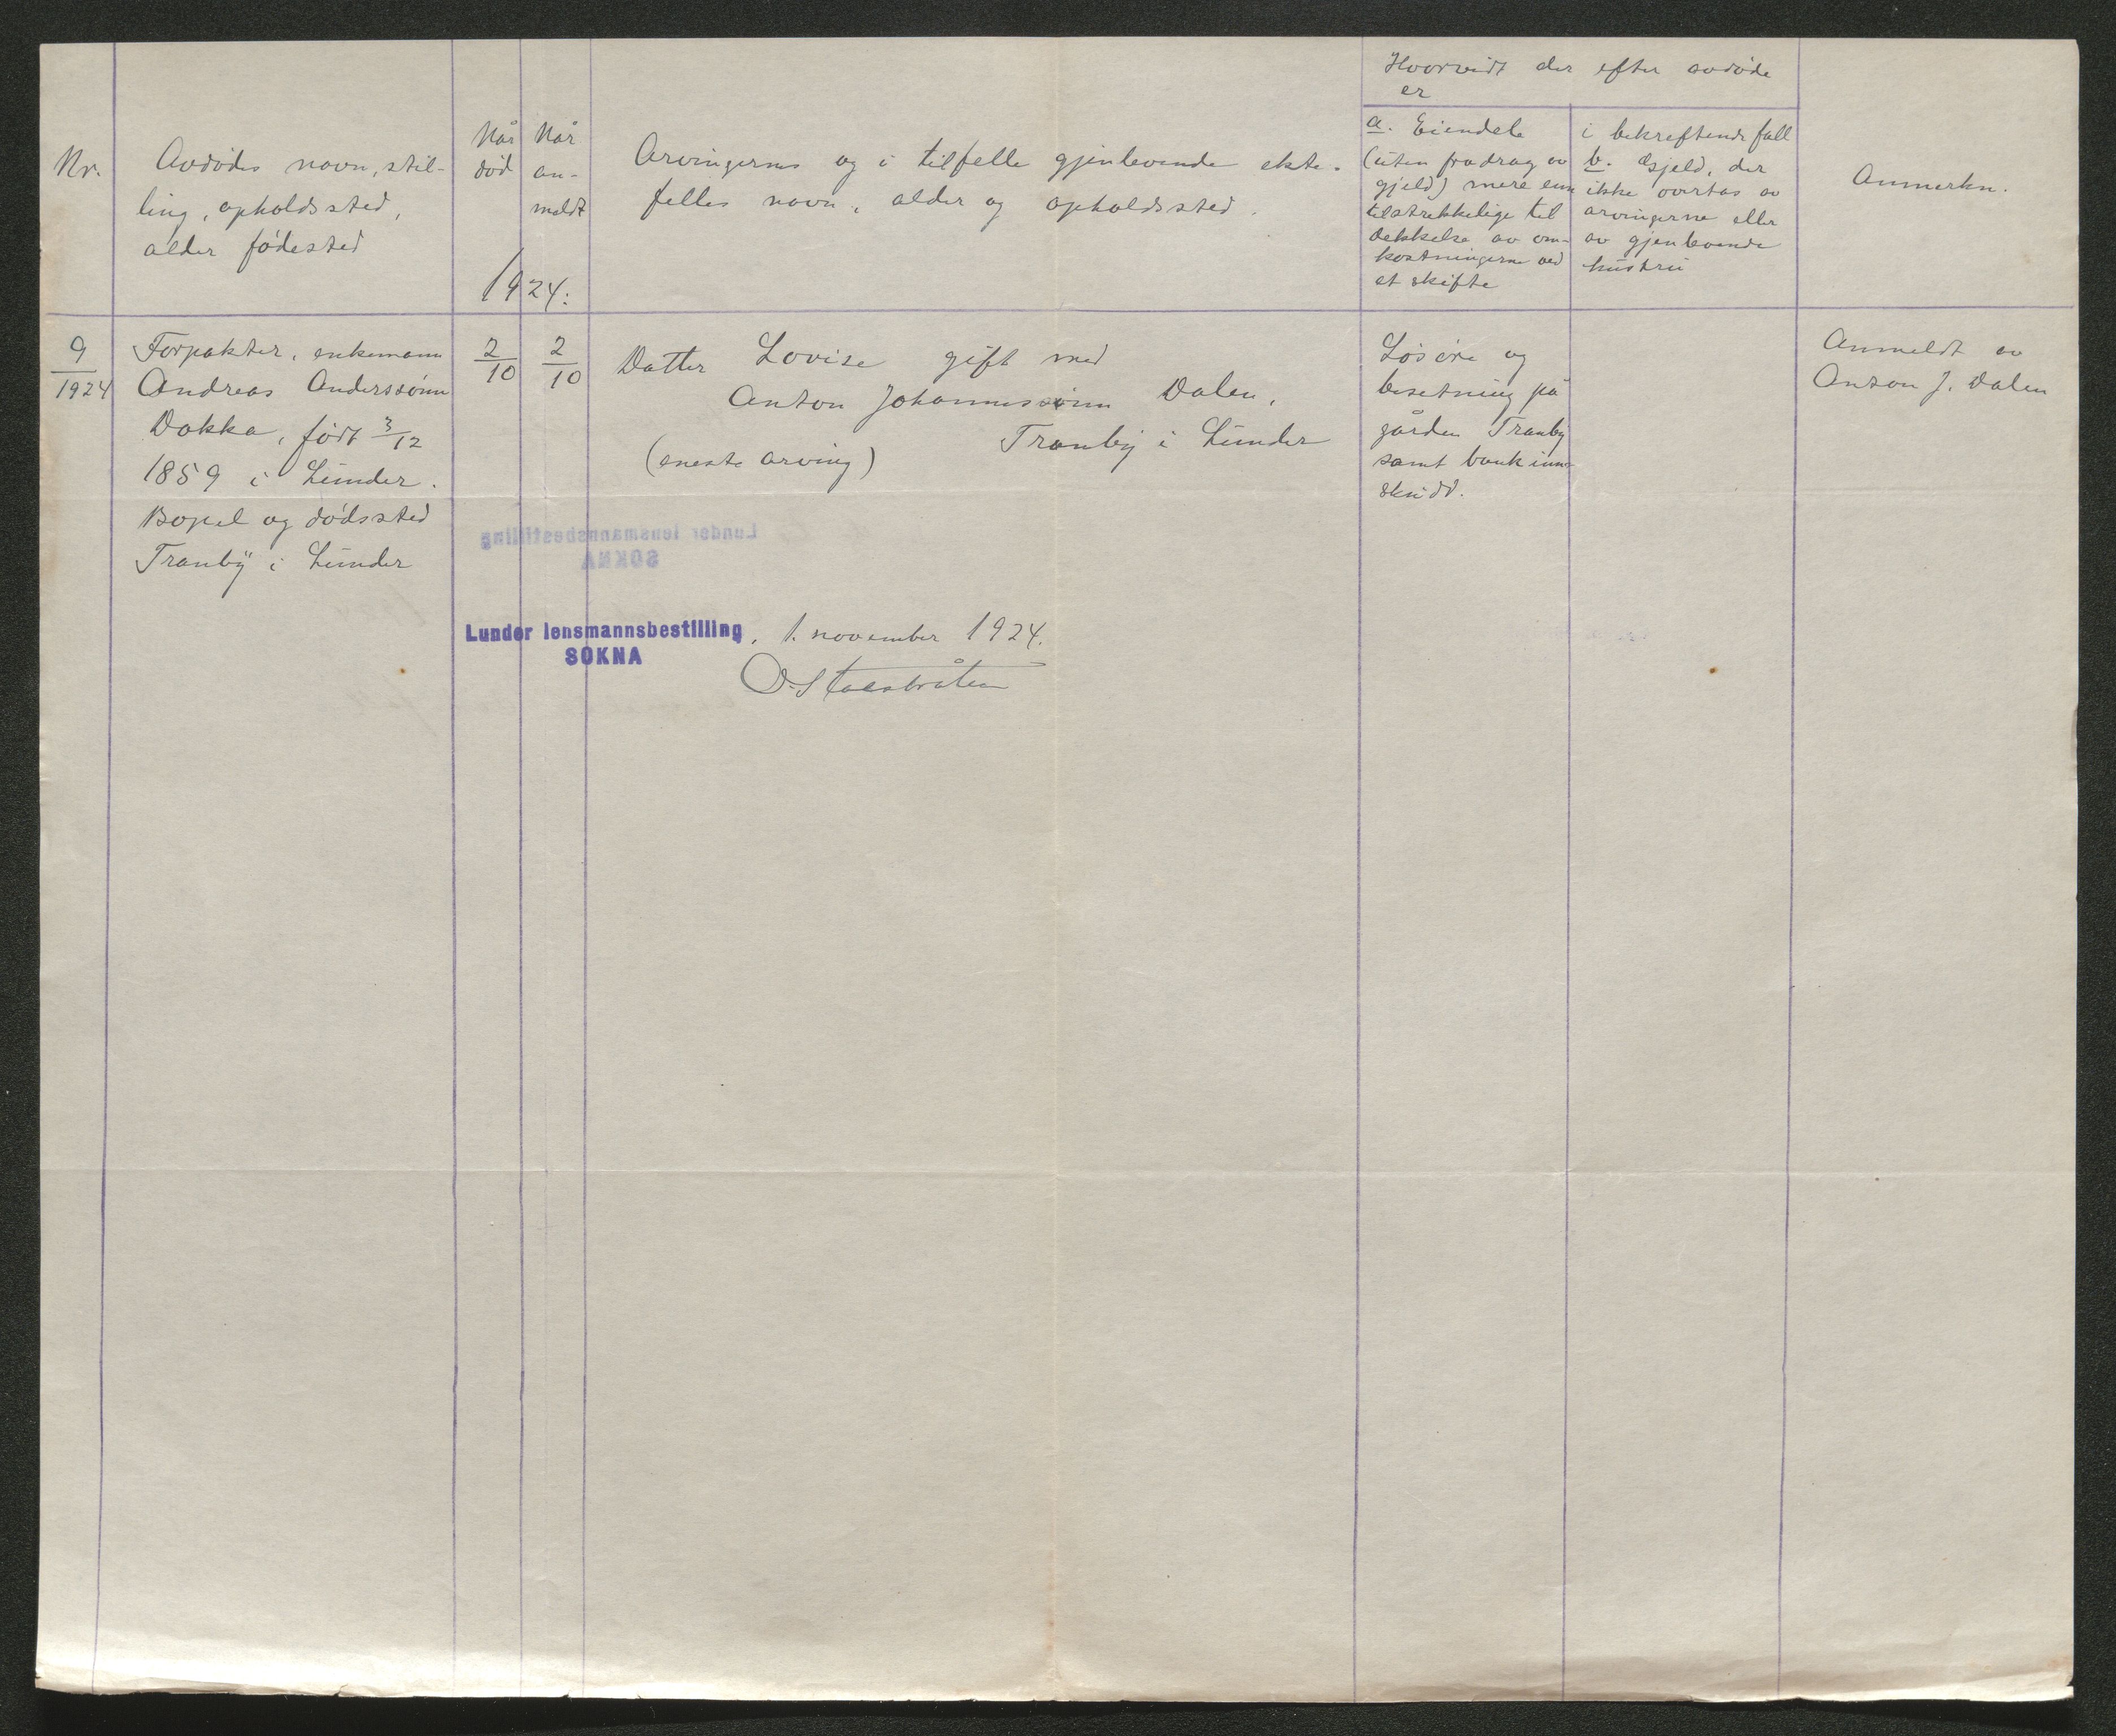 Nr.
Avdødes navn, stil-
ling, opholdssted,
alder fødested
Når
død
Når
an-
meldt
1924:
Arvingernes og i tilfelle gjenlevende ekte-
felles navn, alder og opholdssted.
Hvorvidt der efter avdøde
er
a. Eiendele
(uten fradrag av
gjeld) mere enn
tilstrekkelige til
dekkelse av om-
kostningerne ved
et skifte
i bekreftende fall
b. Gjeld, der
ikke overtas av
arvingerne eller
av gjenlevende
hustru
Anmerkn.
9
1924
Forpakter, enkemann
Andreas Anderssønn
Dokka, født 3/12
1859 i Lunder.
Bopel og dødssted
Tranby i Lunder
2/10
2/10
Datter Lovise gift med
Anton Johannessønn Dalen,
Tranby i Lunder
(eneste arving)
Løsøre og
besetning på
gården Tranby
samt bankinn-
skudd.
Anmeldt av
Anton J. Dalen
Lunder lensmannsbestilling
SOKNA
Lunder lensmannsbestilling, 1. november 1924.
SOKNA